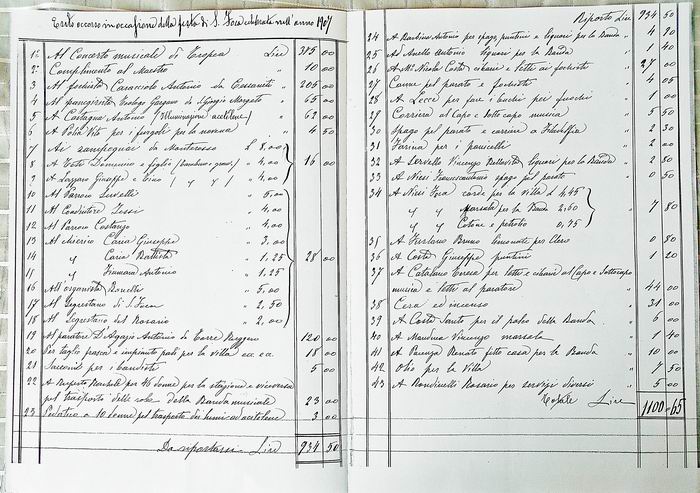 Esito occorso in occasione della festa di S. Foca celebrata nell'anno 1907
1° Al Concerto musicale di Tropea Lire 375 00
2° Complimento al Maestro " 10 00
3 Al fochista Caracciolo Antonio da Cessaniti " 205 00
4 Al panegirista Teologo Gargano di S. Giorgio Morgeto " 65 00
5 A Castagna Antonio (Illuminazione acetilene) " 62 00
6 A Polia Vito per i furgoli per la novena " 4 50
7 Ai zampognai da Monterosso L 8,00
8 A Testa Domenico e figlio (tamburino, gran.) " 4,00 16 00
9 A Lazzaro Giuseppe e " 4,00
10 Al Parroco " 5,00
11 Al Conduttore Tassi " 4,00
12 Al Parroco Costanzo " 4,00
13 Al chierico Caria Giuseppe " 3,00
14 " Caria Battista " 1,25 28 00
15 " Antonio " 1,25
16 All'organista Bonelli " 5,00
17 Al Segrestano di S. Foca " 2,50
18 Al Segrestano del Rosario " 2,00
19 Al paratore D'Agazio Antonio di Torre Ruggero 120 00
20 Per taglio frasca e impianto pali per la villa ecc. ecc. " 18 00
21 per i bandisti " 5 00
22 A Ruperto Bansale per 46 donne per la stagione e viceversa
pel trasporto delle robe della Banda musicale " 23 00
23 Pedatico a 10 donne pel trasporto dei lumi ad acetolene " 3 00
Da riportarsi Lire 934 50
Riporto Lire 934 50
24 A Barbina Antonio per spago, puntini e liquori per la Banda " 4 90
25 Ad Anello Antonio liquori per la Banda " 1 40
26 A Mr Nicola Costa cibarie e letti ai fochisti " 27 00
27 Carne pel parato e fochista " 4 05
28 A Lecce per fare i buchi pei fuochi " 1 00
29 Corriera al Capo e Sotto capo musica " 5 50
30 Spago pel parato e carmine a Filadelfia " 2 30
31 Farina per i panicelli " 2 00
32 A Servello Vincenzo Battista liquori per la Banda " 2 80
33 A Nisi Francescantonio spago pel parato " 0 50
34 A Nisi Foca corde per la villa L 4,45
" " marsala per la Banda 2,60 7 80
" " Cotone e petrolio 0,75
35 A Bruno limonate per Clero " 0 80
36 A Costa Giuseppe puntini " 1 20
37 A Catalano Teresa per letti e cibarie al Capo e Sottocapo
musica e letti al paratore " 44 00
38 Cera ed incenso " 31 00
39 A Costa Santo per il palco della Banda " 6 00
40 A Manduca Vincenzo marsala " 1 40
41 A Parenza Renato fitto casa per la Banda " 10 00
42 Olio per la Villa " 7 50
43 A Rondinelli Rosario per servizi diversi " 5 00
Totale Lire 1100 65